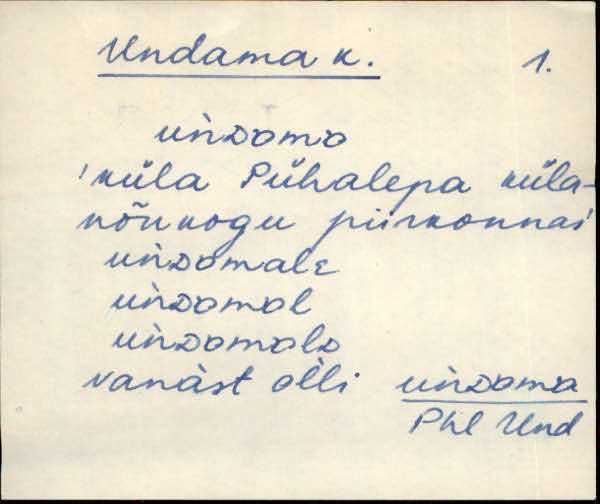 Undama k.
1.
uǹDama
'küla Pühalepa küla-
nõukogu piirkonnas'
uǹDamale
uǹDamal
uǹDamalD
vanàst oĺli uǹDama
Phl Und